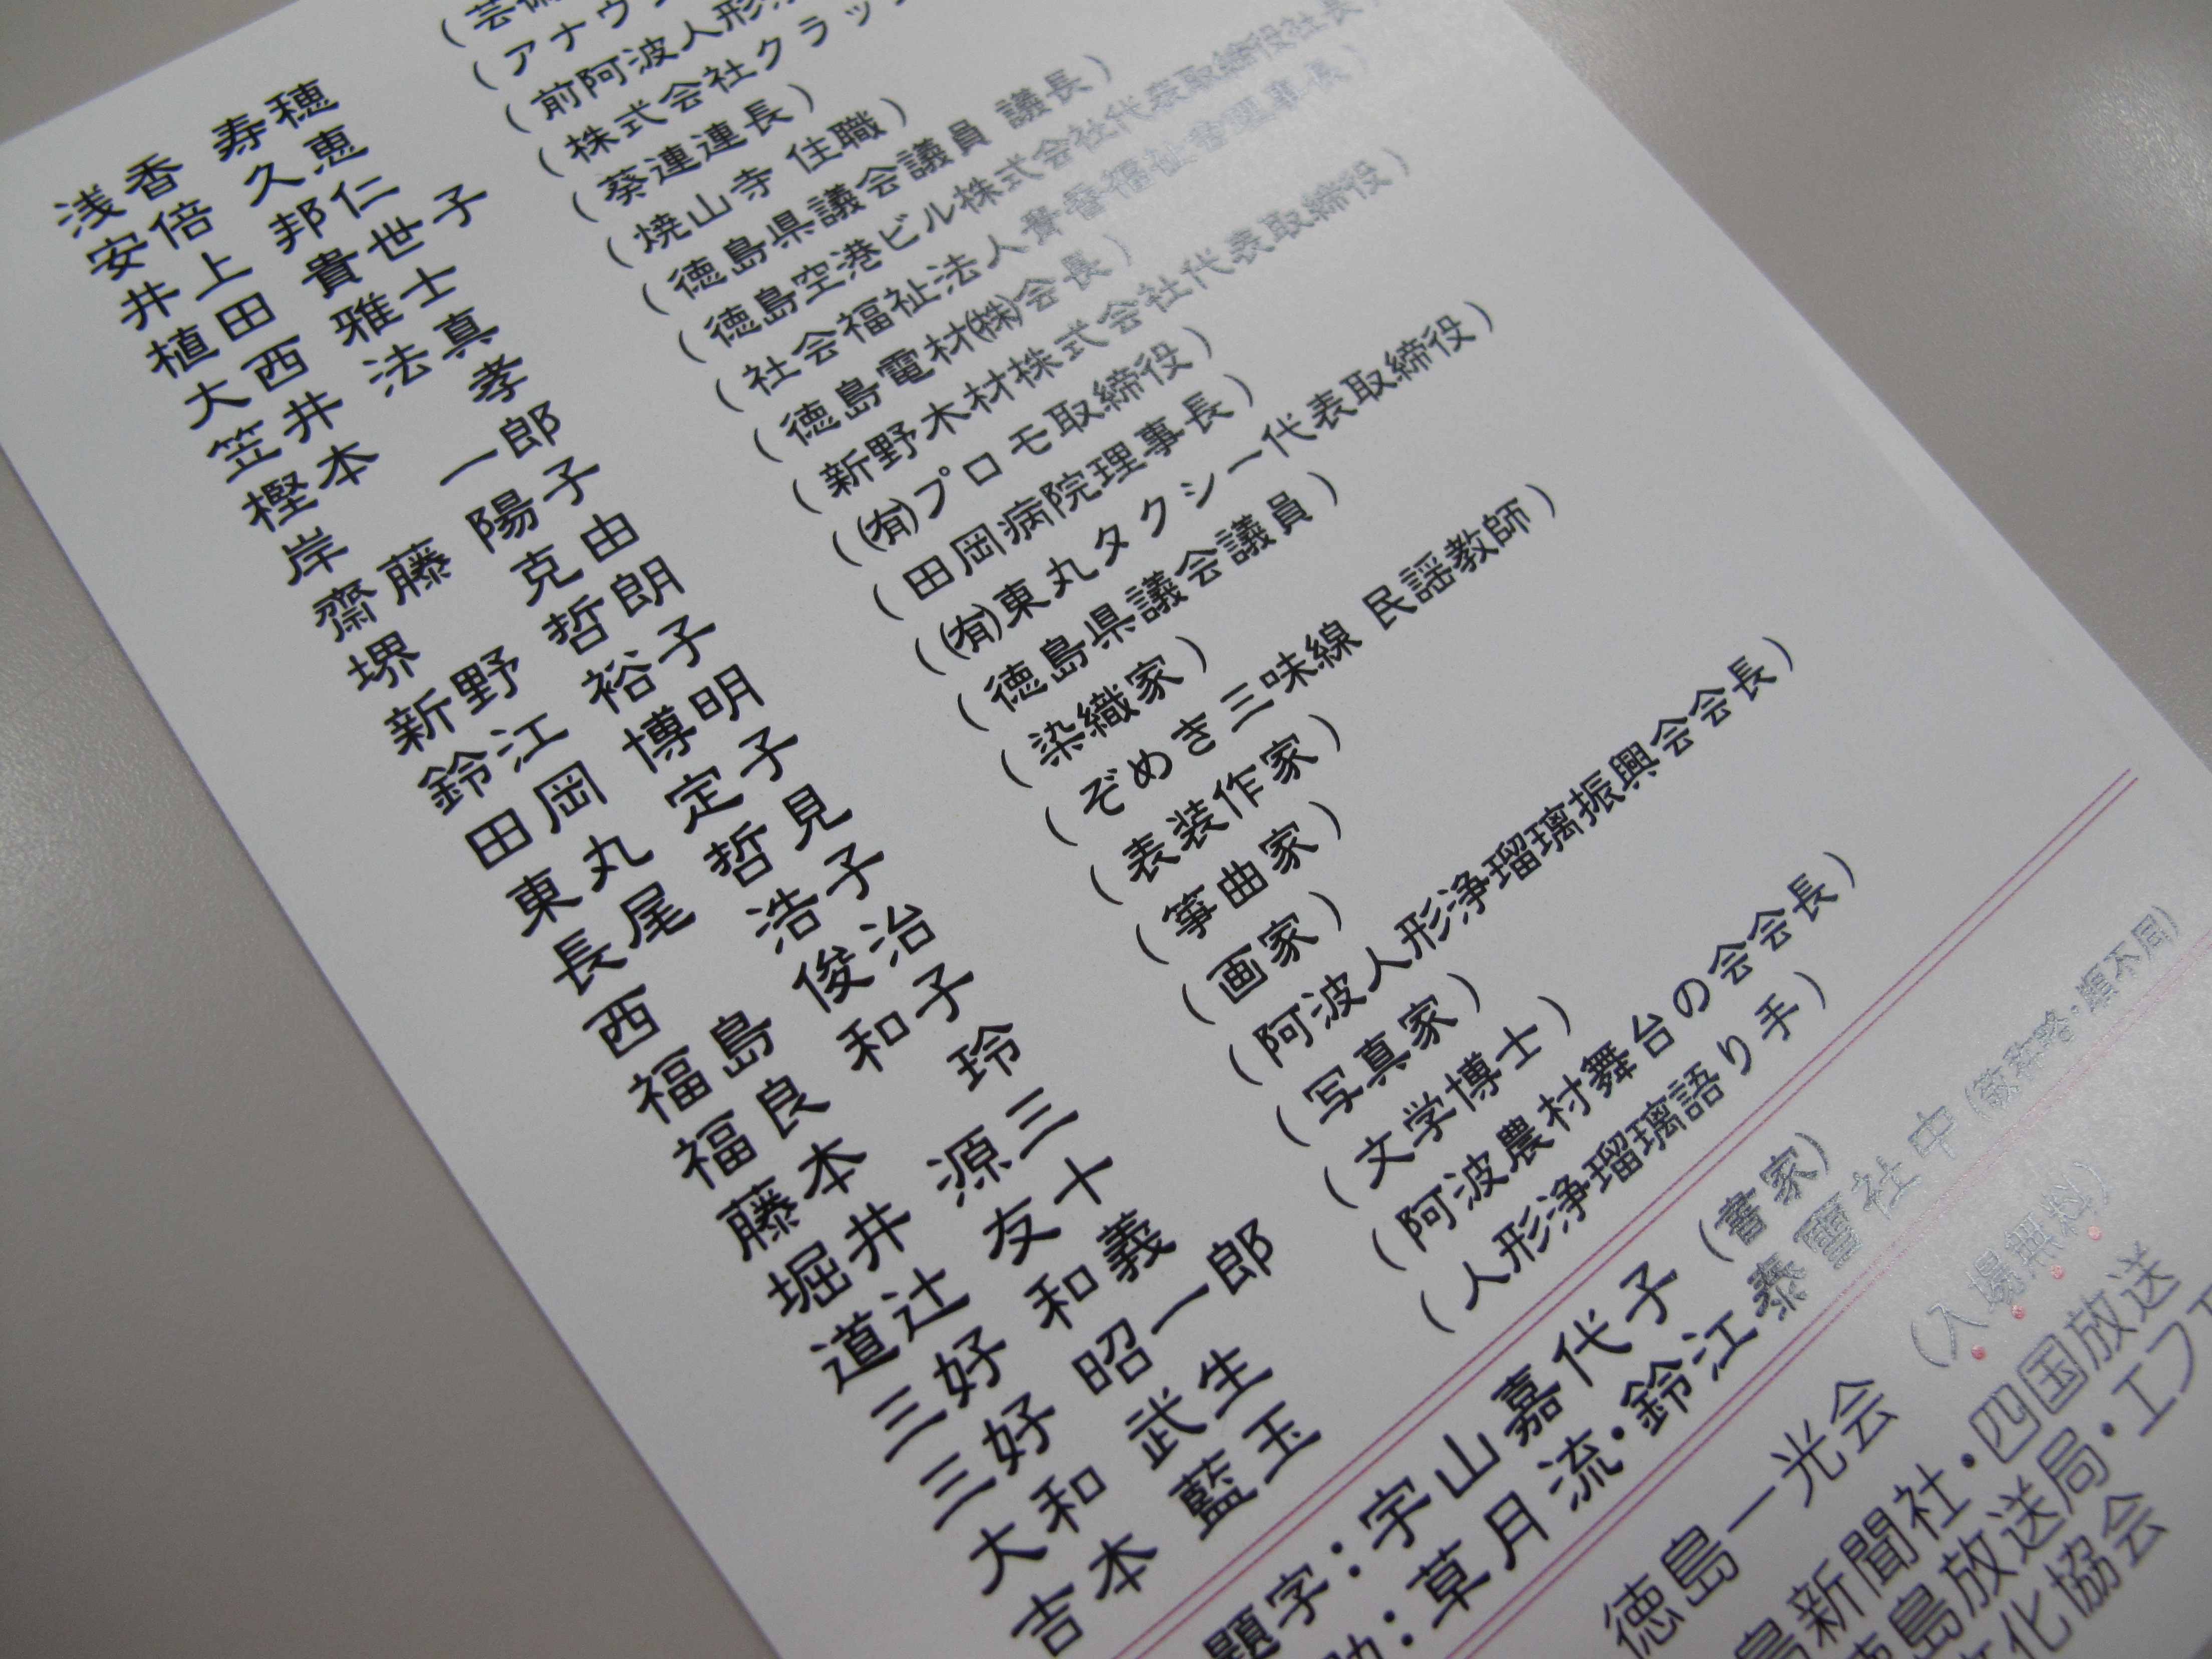 浅香 寿穂 (芸術
安倍 久恵 (アナウン
井上 邦仁 (前阿波人形浄
植田 貴世子 (株式会社クラッ
大西 雅士 (葵連連長)
笠井 法真 (焼山寺 住職)
樫本 孝 (徳島県議会議員 議長)
岸 一郎 (徳島空港ビル株式会社代表取締役社長)
齋藤 陽子 (社会福祉法人青香福祉会理事長)
堺 克由 (徳島電材㈱会長)
新野 哲朗 (新野木材株式会社代表取締役)
鈴江 裕子 (㈲プロモ取締役)
田岡 博明 (田岡病院理事長)
東丸 定子 (㈲東丸タクシー代表取締役)
長尾 哲見 (徳島県議会議員)
西 浩子 (染織家)
福島 俊治 (ぞめき三味線 民謡教師)
福良 和子 (表装作家)
藤本 玲 (箏曲家)
堀井 源三 (画家)
道辻 友十 (阿波人形浄瑠璃振興会会長)
三好 和義 (写真家)
三好 昭一郎 (文学博士)
大和 武生 (阿波農村舞台の会会長)
吉本 藍玉 (人形浄瑠璃語り手)
題字：宇山嘉代子 (書家)
助：草月流・鈴江泰霻社中 (敬称略・順不同)
徳島一光会 (入場無料)
島新聞社・四国放送
徳島放送局・エフエ
文化協会